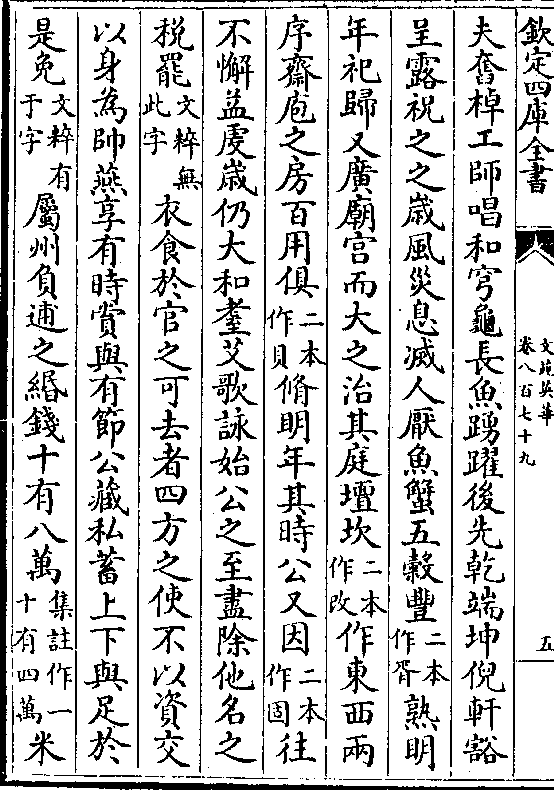 欽定四庫全書
文苑英華
卷八百七十九
五
夫奮棹工師唱和穹龜長魚踴躍後先乾端坤倪軒豁
呈露祝之之歲風災息滅人厭魚蟹五穀豐二本作胥熟明
年祀歸又廣廟宮而大之治其庭壇坎二本作改作東西兩
序齋庖之房百用俱二本作貝脩明年其時公又因二本作固往
不懈益虔歲仍大和耋艾歌詠始公之至盡除他名之
稅罷文粹無此字衣食於官之可去者四方之使不以資交
以身為帥燕享有時賞與有節公藏私蓄上下與足於
是免文粹有于字屬州負逋之緡錢十有八萬集註作一十有四萬米